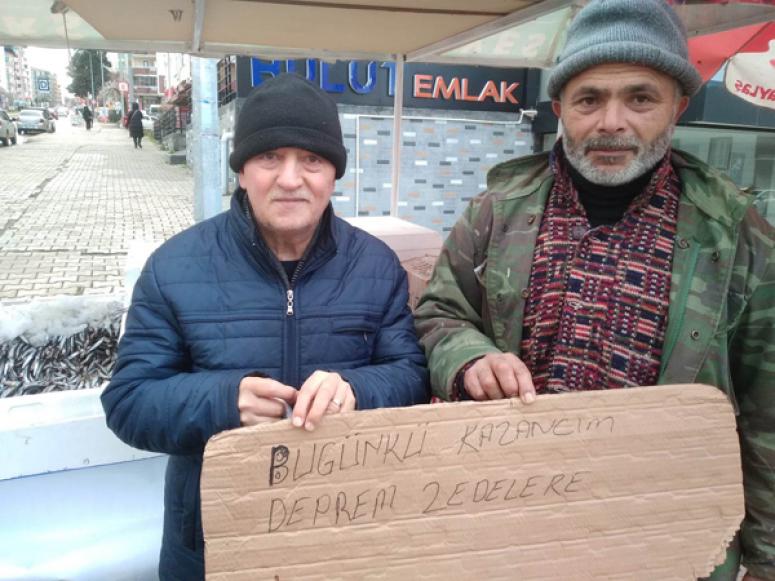 BULUT EMLAK
BUGÜNKÜ KAZANCIM
DEPREM ZEDELERE